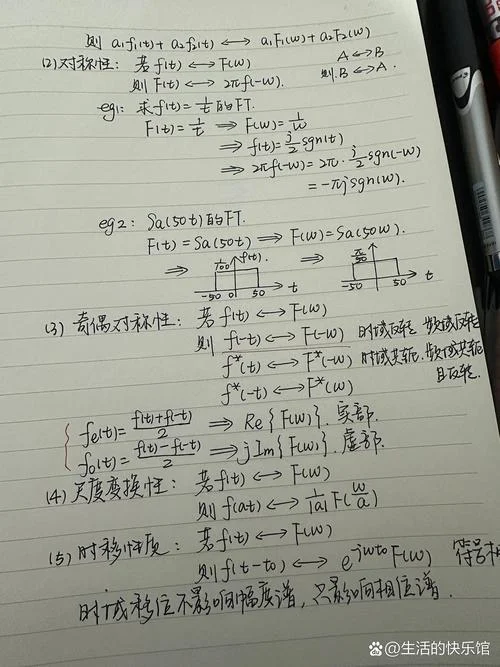 则 a₁f₁(t)+a₂f₂(t) ⟷ a₁F₁(w)+a₂F₂(w)
(2) 对称性: 若 f(t) ⟷ F(w)  A ⟷ B
则 F(t) ⟷ 2πf(-w).  则 B ⟷ A.
eg1: 求 f(t)=1/t 的FT.
F(t)=1/t ⇒ F(w)=1/w
⇒ f(t)=j/2 sgn(t)
⇒ 2πf(-w)=2π·j/2 sgn(-w)
=-πj sgn(w).
eg2: Sa(50t)的FT.
F(t)=Sa(50t) ⇒ F(w)=Sa(50w).
⇒ 1/100 f(t). -50 0 50 t ⇒ π/50 -50 50 t
(3) 奇偶对称性: 若 f(t) ⟷ F(w)
则 f(-t) ⟷ F(-w) 时域反转 频域反转
f*(t) ⟷ F*(-w) 时域共轭, 频域共轭
且反转
f*(-t) ⟷ F*(w)
fe(t)=f(t)+f(-t)/2 ⇒ Re{F(w)}. 实部.
fo(t)=f(t)-f(-t)/2 ⇒ jIm{F(w)}. 虚部.
(4) 尺度变换性: 若 f(t) ⟷ F(w)
则 f(at) ⟷ 1/|a| F(w/a)
(5) 时移性质: 若 f(t) ⟷ F(w)
则 f(t-t₀) ⟷ e^jwt₀ F(w) 符号相
时域移位不影响幅度谱, 只影响相位谱.
@生活的快乐馆